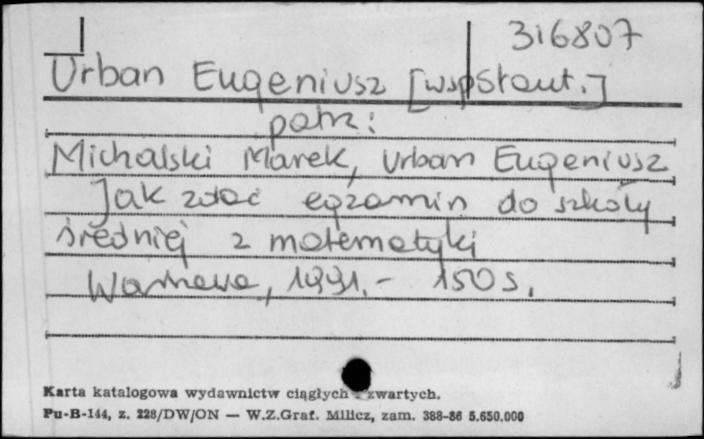 316807
Urban Eugeniusz [współaut.]
patrz:
Michalski Marek, Urban Eugeniusz
Jak zdać egzamin do szkoły
średniej z matematyki
Warszawa, 1991.- 150 s.
Karta katalogowa wydawnictw ciągłych zwartych.
Pu-B-144, z. 228/DW/ON — W.Z.Graf. Milicz, zam. 388-86 5.650.000